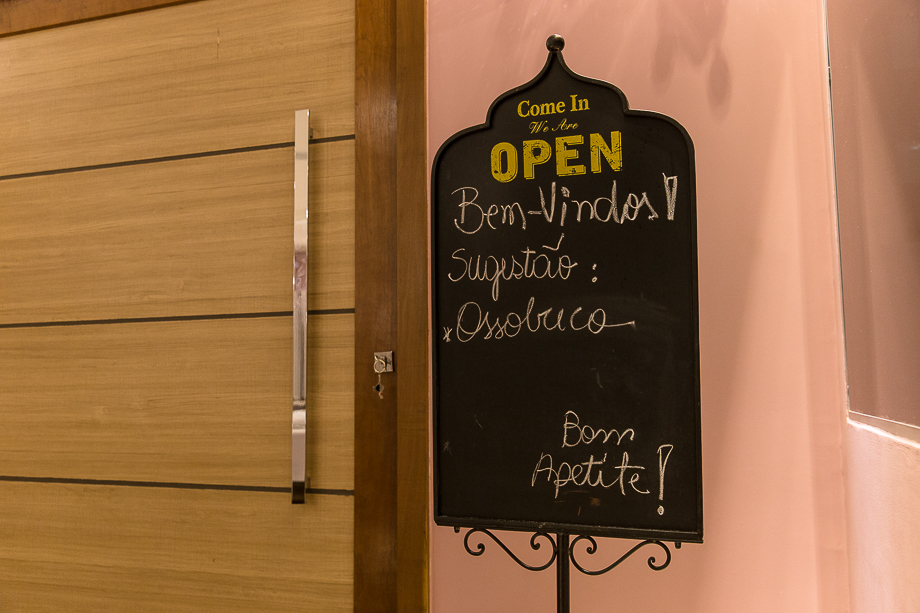 Come In
We Are
OPEN
Bem-Vindos!
Sugestão :
*Ossobuco
Bom
Apetite!